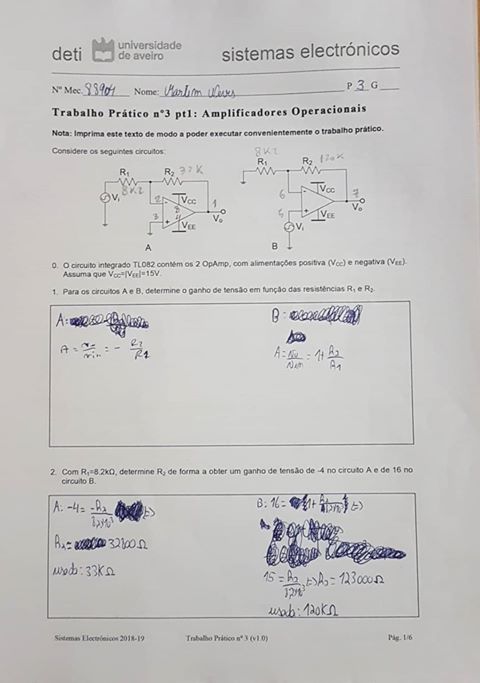 deti universidade de aveiro sistemas electrónicos
Nº Mec. 88904 Nome: P 3 G
Trabalho Prático nº3 pt1: Amplificadores Operacionais
Nota: Imprima este texto de modo a poder executar convenientemente o trabalho prático.
Considere os seguintes circuitos:
R1 R2 33K 8K2 Vi 2 3 8 4 1 VCC VEE Vo A
8K2 R1 R2 120K 6 5 7 VCC VEE Vo Vi B
0. O circuito integrado TL082 contém os 2 OpAmp, com alimentações positiva (VCC) e negativa (VEE).
Assuma que VCC=|VEE|=15V.
1. Para os circuitos A e B, determine o ganho de tensão em função das resistências R1 e R2.
A: B:
A = = - R2/R1 A = = 1+ R2/R1
2. Com R1=8.2kΩ, determine R2 de forma a obter um ganho de tensão de -4 no circuito A e de 16 no
circuito B.
A: -4 = -R2/8,2×10³ (=) B: 16 = 1+ R2/8,2×10³ (=)
R2 = 32800 Ω
usado: 33K Ω 15 = R2/8,2×10³ (=) R2 = 123000 Ω
usado: 120K Ω
Sistemas Electrónicos 2018-19 Trabalho Prático nº 3 (v1.0) Pág. 1/6